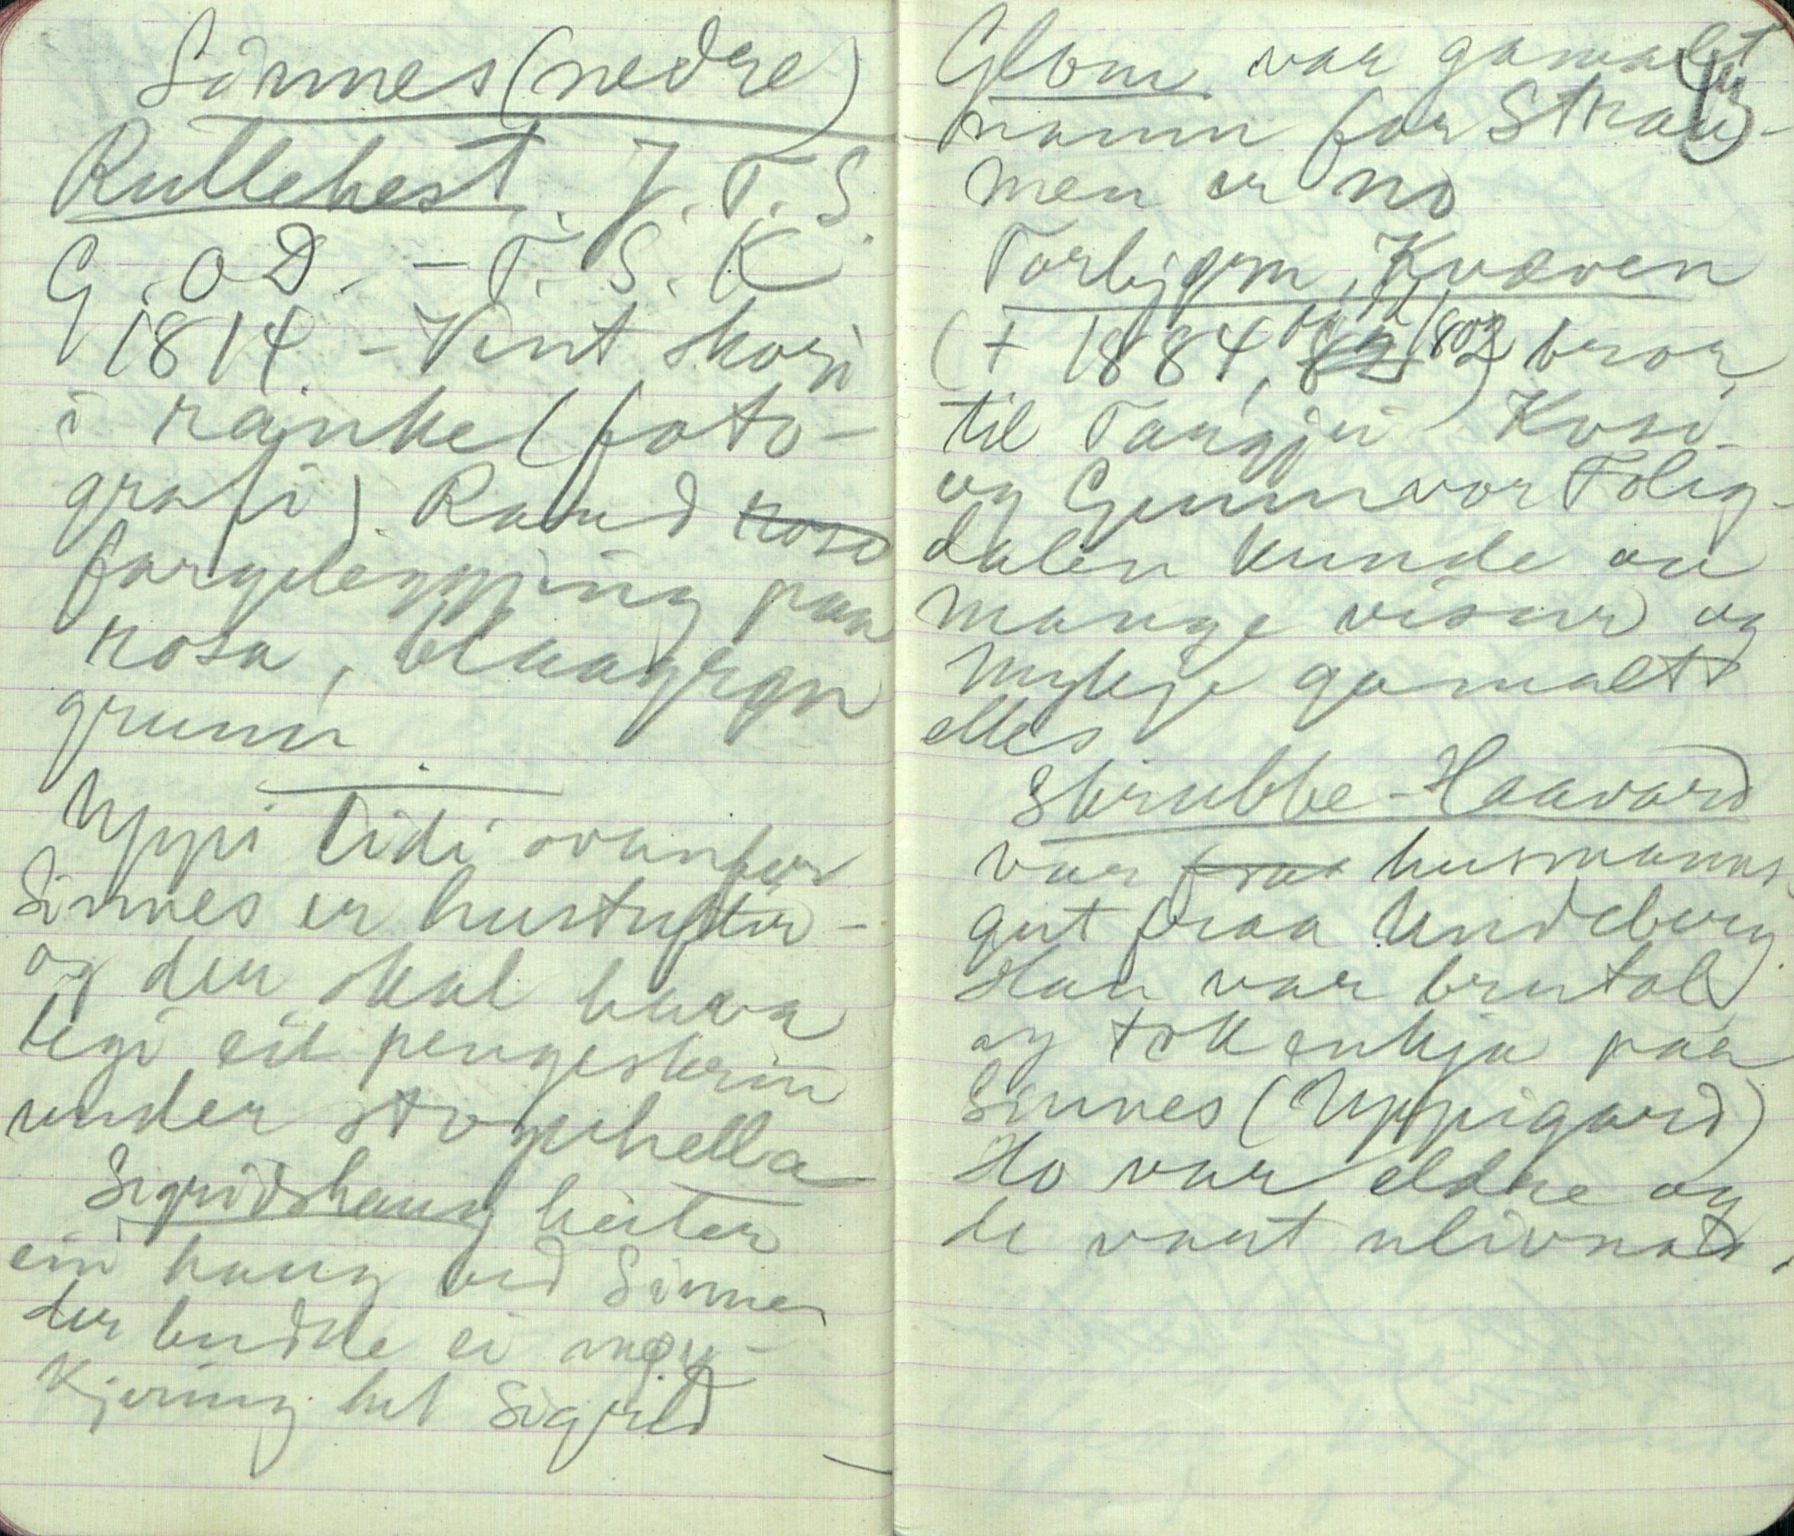 Sinnes (nedre)
Rullehest. J. T. S.
G. O D. - T. S. K
1814 - Vent skori
i ranke (foto-
grafi) Raud rosa
fargeleggjing paa
rosa, blaagrøn
grunn
Uppi Lidi ovanfor
Sinnes er hustufter -
og der skal hava
legi eit pengeskrin
under stovehella
Sigridshaug heiter
ein haug ved Sinnes
der budde ei
kjering het Sigrid
13
Glom var gamalt
namn for Strau-
men er no
Torbjørn Kvæven
(+ 1884, 82 802) bror
til Targjei Kvsi-
og Gunnvor Tolig-
dalen kunde au
mange visur og
mykje gamalt
elles
Skrubbe-Haavard
var fraa husmanns-
gut fraa Undeberg.
Han var brutal,
og tok enkja paa
Sinnes (Uppigard)
Ho var eldre og
de vart ulivnad.